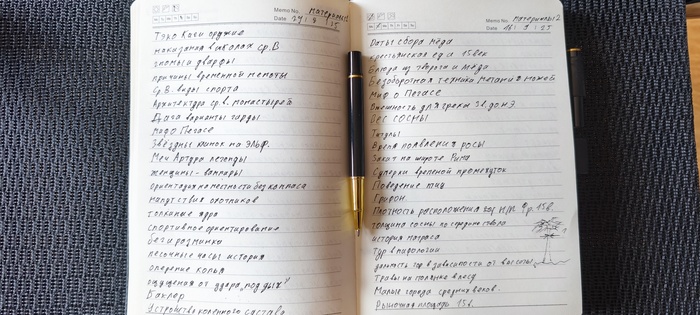 Memo No. материалы 2
Date 14 / 9 / 25
Тэко Каги оружие
наказания в школах ср.В
гномы и дварфы
причины временной немоты
Ср.В. виды спорта
Архитектура ср.в. монастырей
Дага варианты гарды
миф о Пегасе
Звёздный клинок на эльф.
Меч Артура легенды
женщины-вампиры
ориентация на местности без компаса
напутствия охотников
толкание ядра
спортивное ориентирование
бег и разминка
песочные часы история
оперение копья
ощущения от удара "под дых"
Баклер
Устройство коленного сустава
Memo No. материалы 2
Date 14 / 9 / 25
Даты сбора мёда
крестьянская еда 15 век
Блюда из творога и мёда
Безоборотная техника метания ножей
Миф о Пегасе
Внешность для грека 3в. до н.э.
Вес сосны
Титулы
Время появления росы
Закат на широте Рима
Сумерки временой промежуток
Поведение птиц
Грифон
Плотность расположения
толщина сосны по середине ствола
история матраса
Тур в палологии
дальность гор в зависимости от высоты
Травы на полянке в лесу
Малые города средних веков.
Рыночная площадь 15 в.